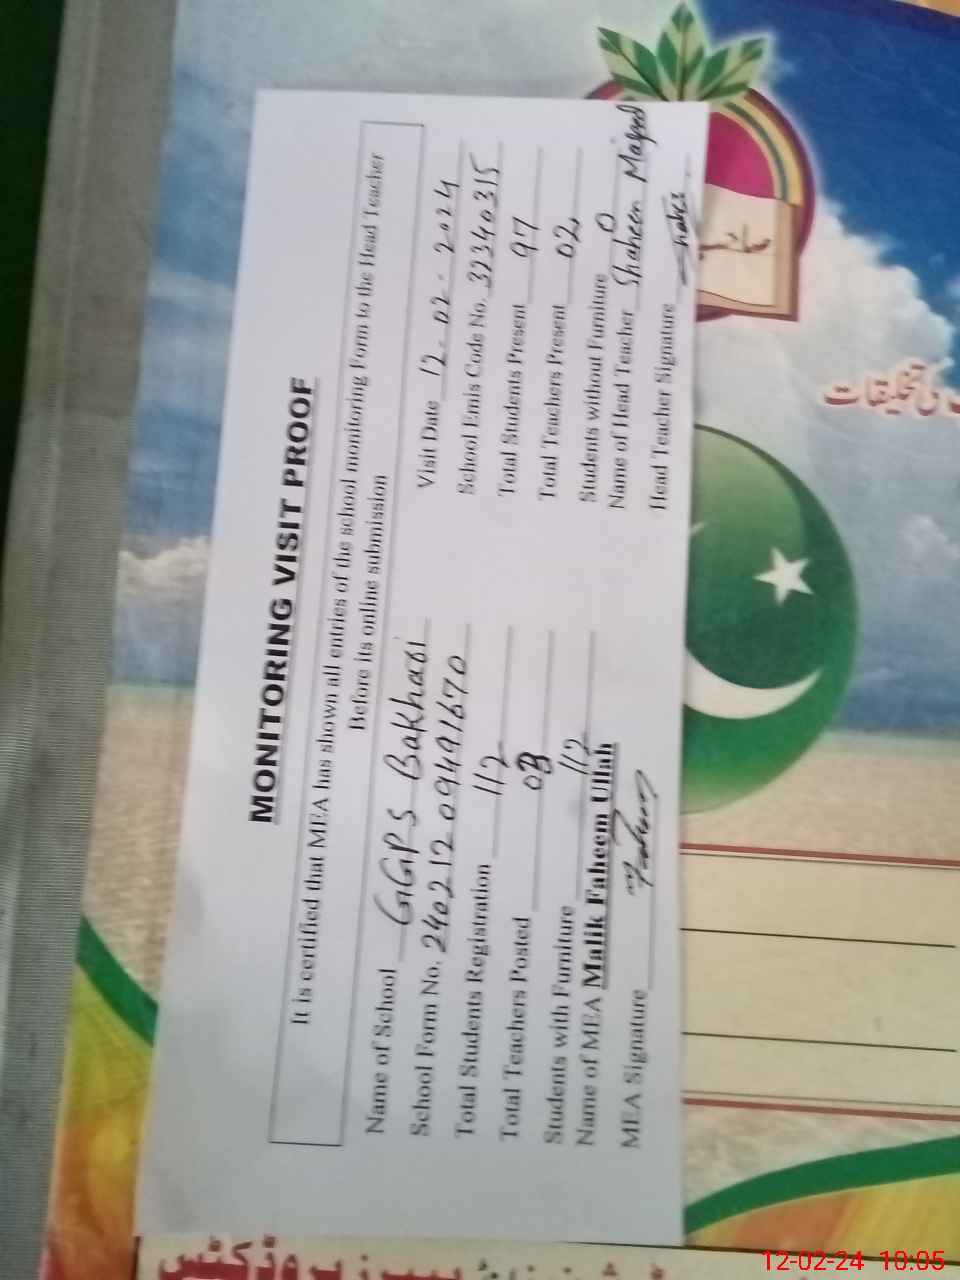 MONITORING VISIT PROOF
It is certified that MEA has shown all entries of the school monitoring Form to the Head Teacher
Before its online submission
Name of School GGPS Bakhari
Visit Date 12-02-2024
School Form No. 24021209491670
School Emis Code No. 32340315
Total Students Registration 112
Total Students Present 97
Total Teachers Posted 03
Total Teachers Present 02
Students with Furniture 112
Students without Furniture 0
Name of MEA Malik Faheem Ullah
Name of Head Teacher Shaheen Majeed
MEA Signature
Head Teacher Signature
کی تخلیقات
پیپرز پروڈکٹس
12-02-24 10:05